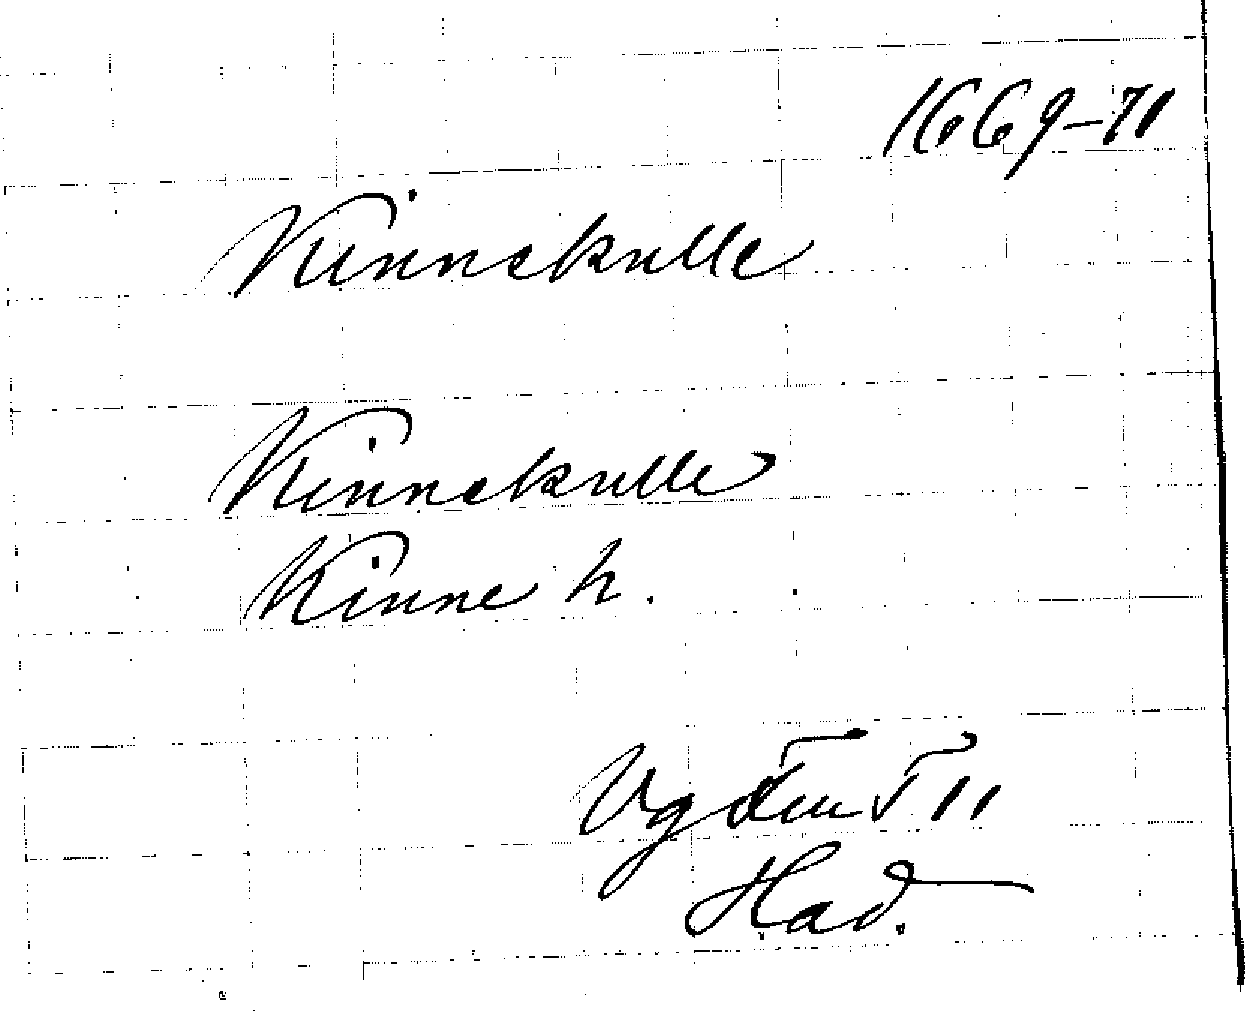 1669-71
Kinnekulle
Kinnekulle
Kinne h.
Had.